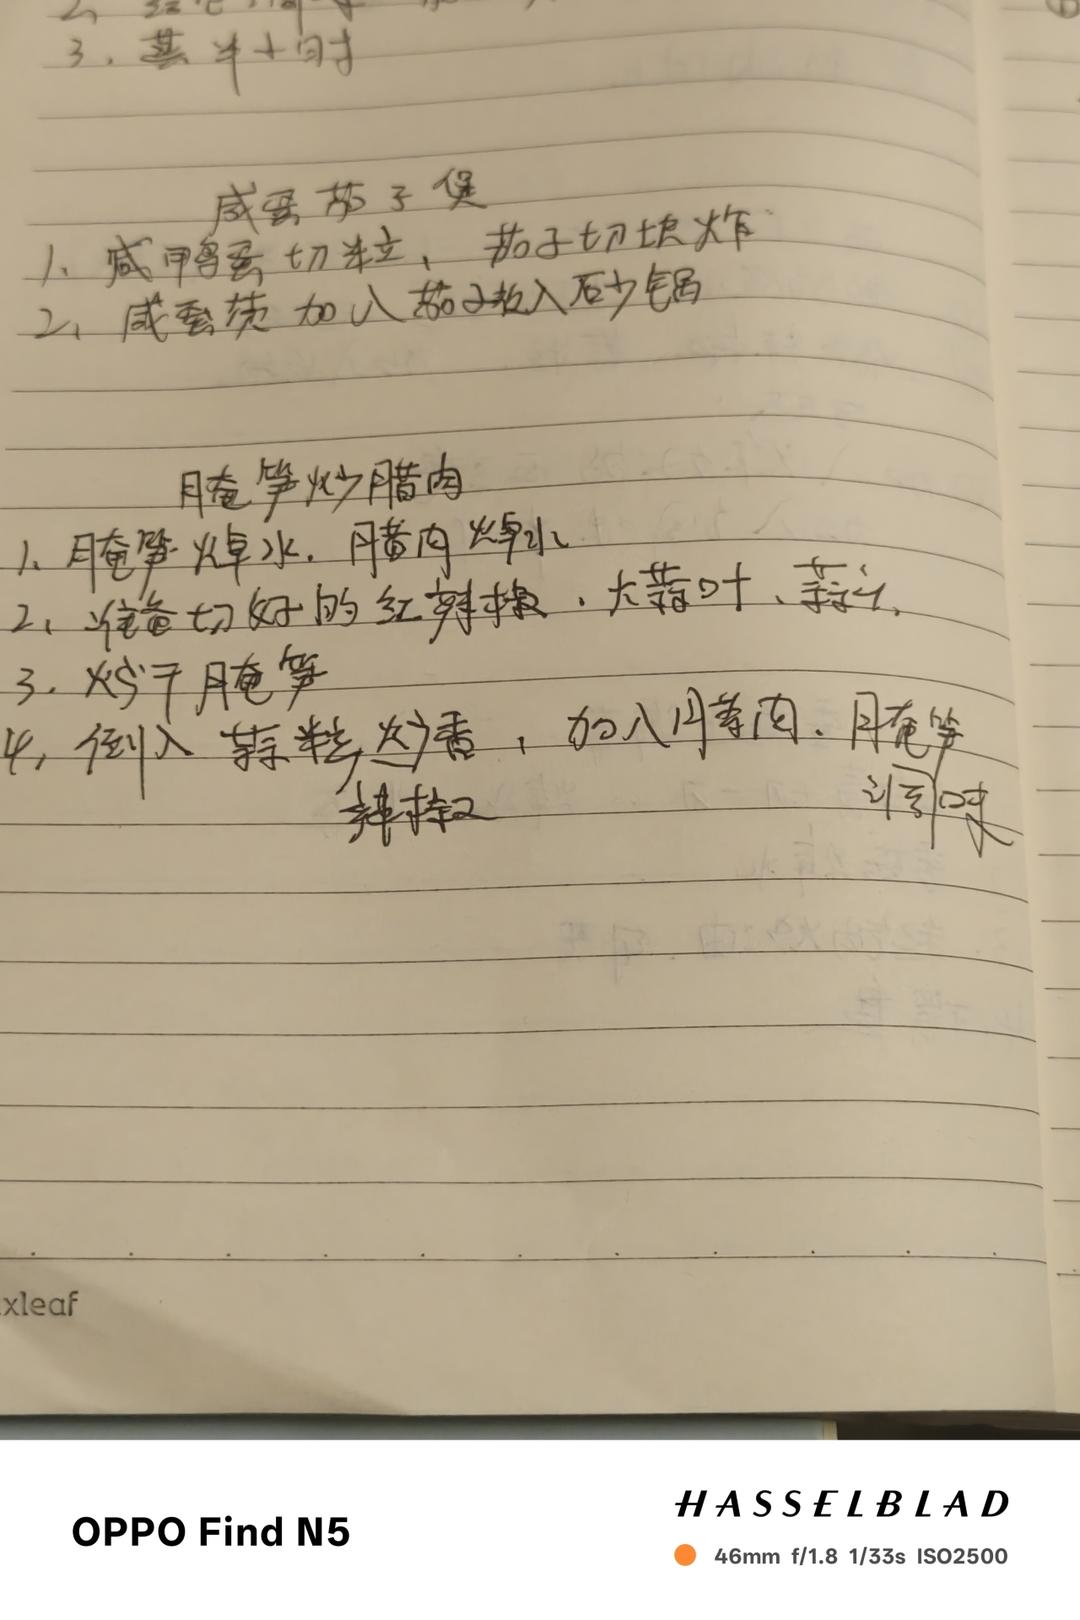 3. 蒸半小时
咸蛋茄子煲
1、咸鸭蛋切粒，茄子切块炸
2、咸蛋黄加入茄子放入砂锅
腌笋炒腊肉
1、腌笋焯水．腊肉焯水
2、准备切好的红辣椒．大蒜叶、蒜头．
3. 炒干腌笋
4、倒入蒜粒炒香，加入腊肉．腌笋
辣椒 调味
xleaf
OPPO Find N5
HASSELBLAD
46mm f/1.8 1/33s ISO2500